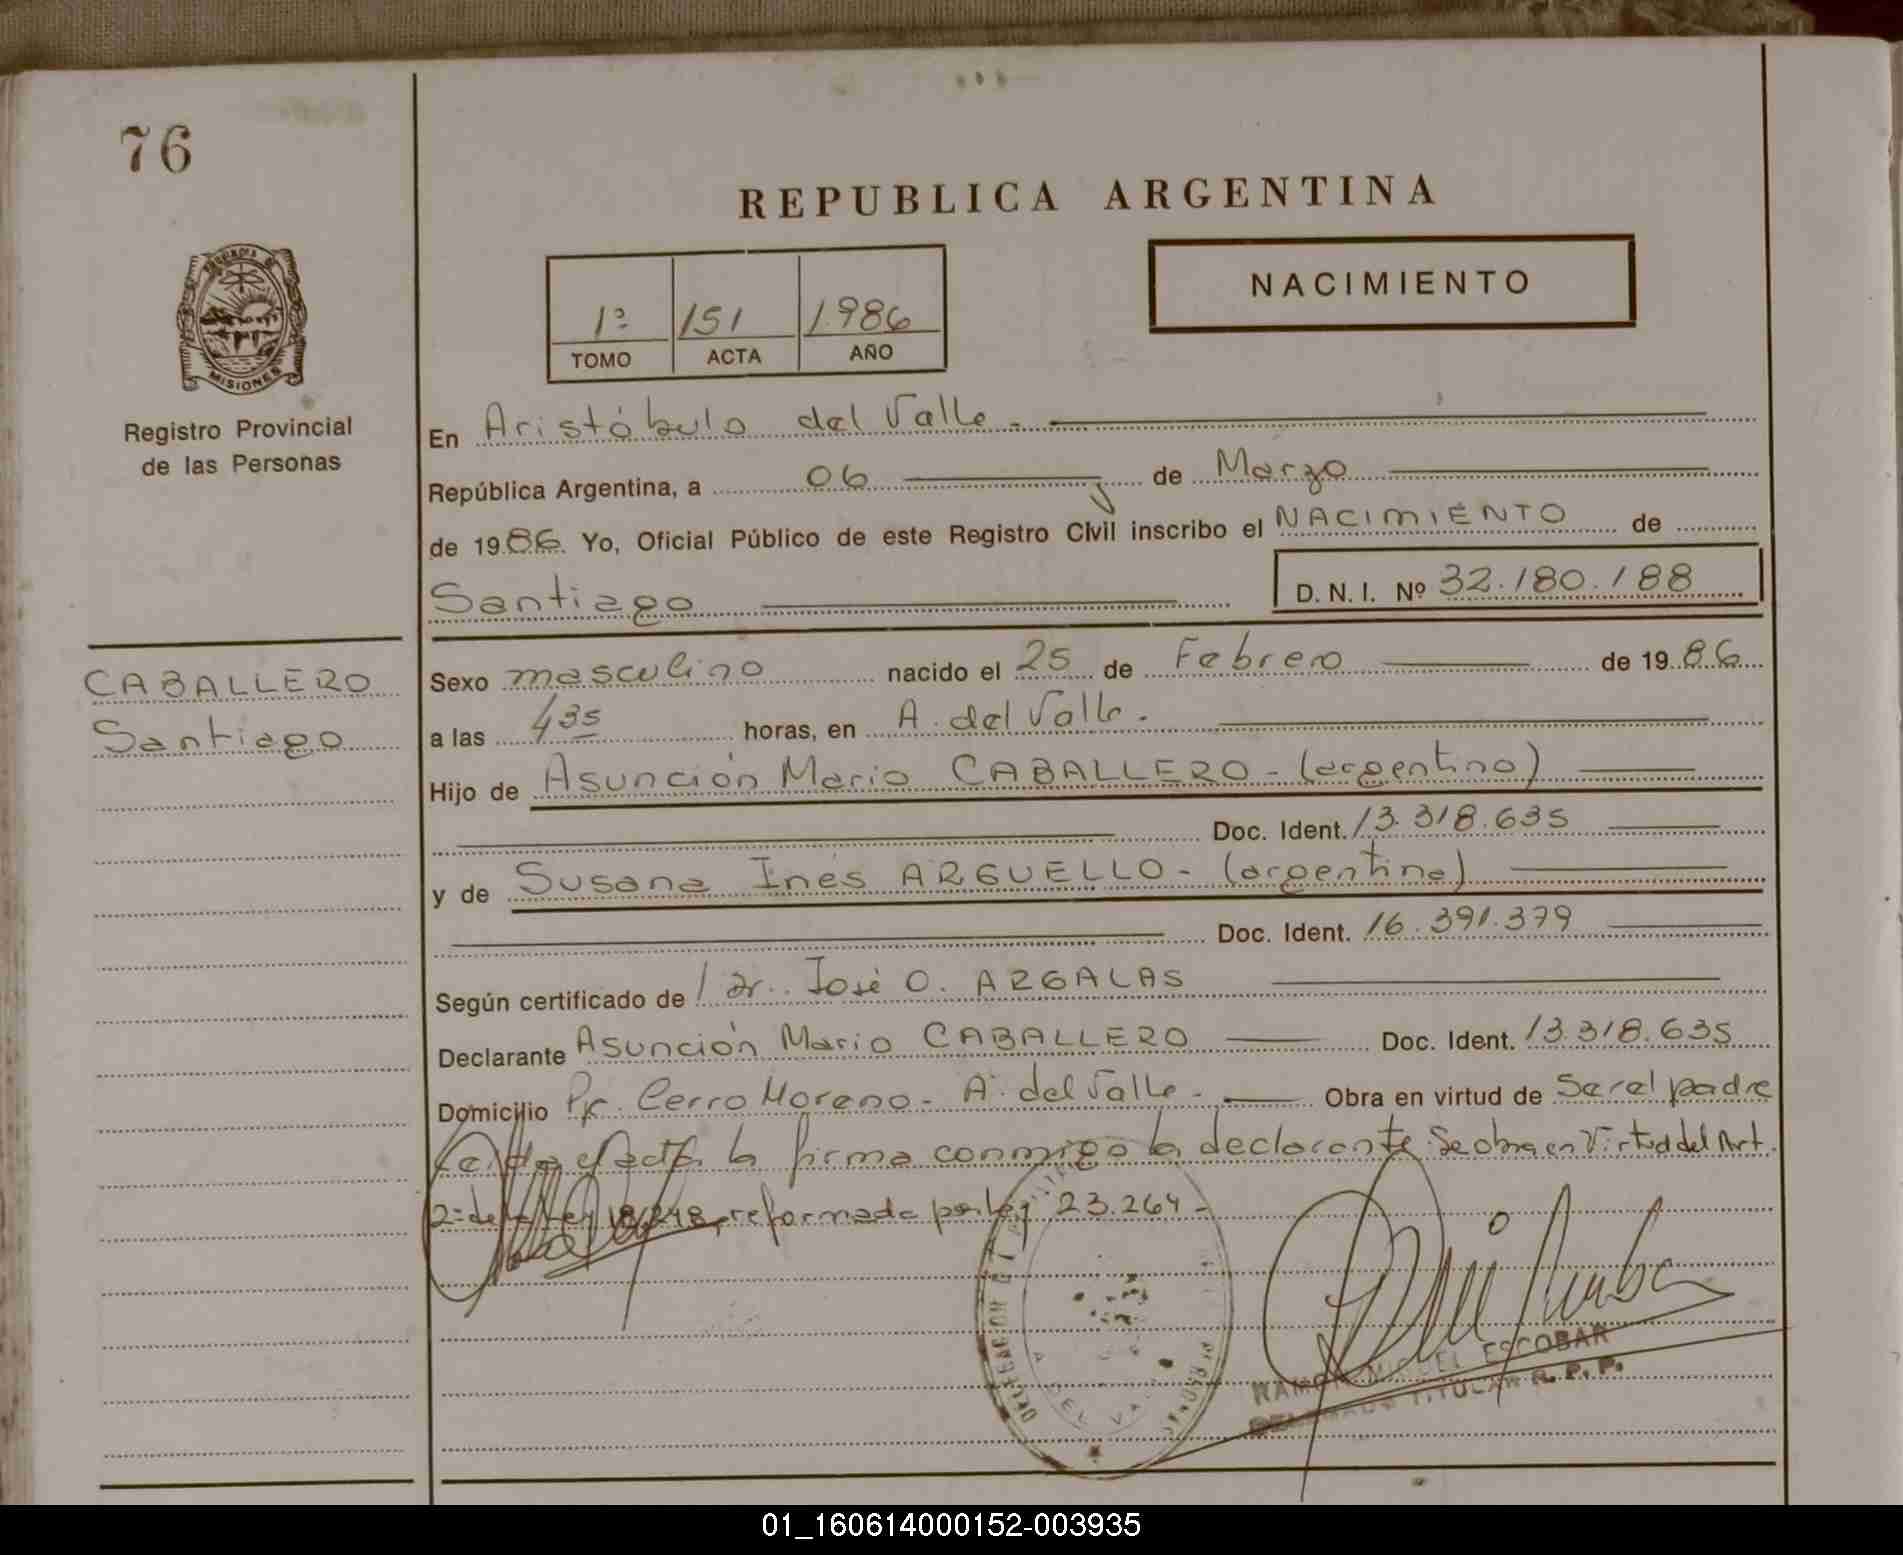 76
REPUBLICA ARGENTINA
NACIMIENTO
1º 151 1.986
TOMO ACTA AÑO
MISIONES
Registro Provincial
de las Personas
En Aristóbulo del Valle.-
República Argentina, a 06 de Marzo
de 1986. Yo, Oficial Público de este Registro Civil inscribo el NACIMIENTO de
Santiago D. N. I. Nº 32.180.188
CABALLERO
Santiago
Sexo masculino nacido el 25 de Febrero de 1986
a las 435 horas, en A. del Valle.
Hijo de Asunción Mario CABALLERO - (argentino)
Doc. Ident. 13.318.635
y de Susana Inés ARGUELLO - (argentina)
Doc. Ident. 16.391.379
Según certificado de Dr. José O. ARGALAS
Declarante Asunción Mario CABALLERO Doc. Ident. 13.318.635
Domicilio Cerro Moreno - A. del Valle - Obra en virtud de Ser el padre
Leída el acta la firma conmigo la declarante. Se obra en Virtud del Art.
2º de la Ley 18.248, reformada por ley 23.264 -
DELEGACION
A. DEL VALLE
RAMON MIGUEL ESCOBAR
DELEGADO TITULAR R. P. P.
01_160614000152-003935